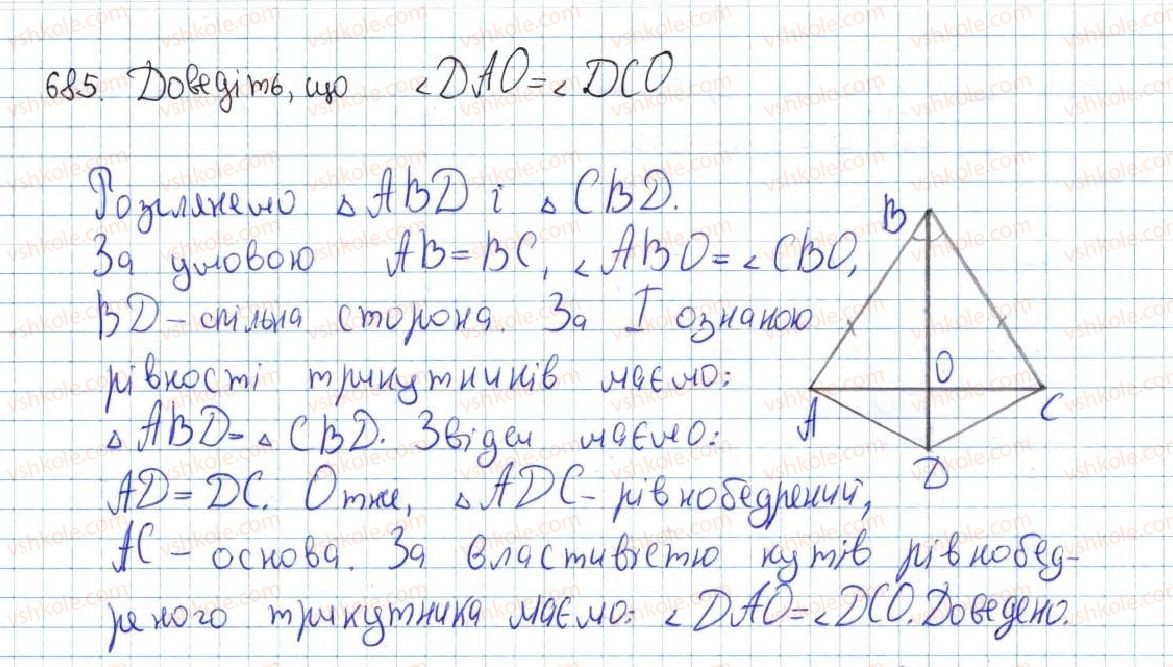 685. Доведіть, що ∠DAO=∠DCO
Розглянемо △ABD і △CBD.
За умовою AB=BC, ∠ABO=∠CBO,
BD-спільна сторона. За I ознакою
рівності трикутників маємо:
△ABD=△CBD. Звідси маємо:
AD=DC. Отже, △ADC-рівнобедрений,
AC-основа. За властивістю кутів рівнобед-
реного трикутника маємо: ∠DAO=∠DCO. Доведено.
B
O
A
C
D
vshkole.com